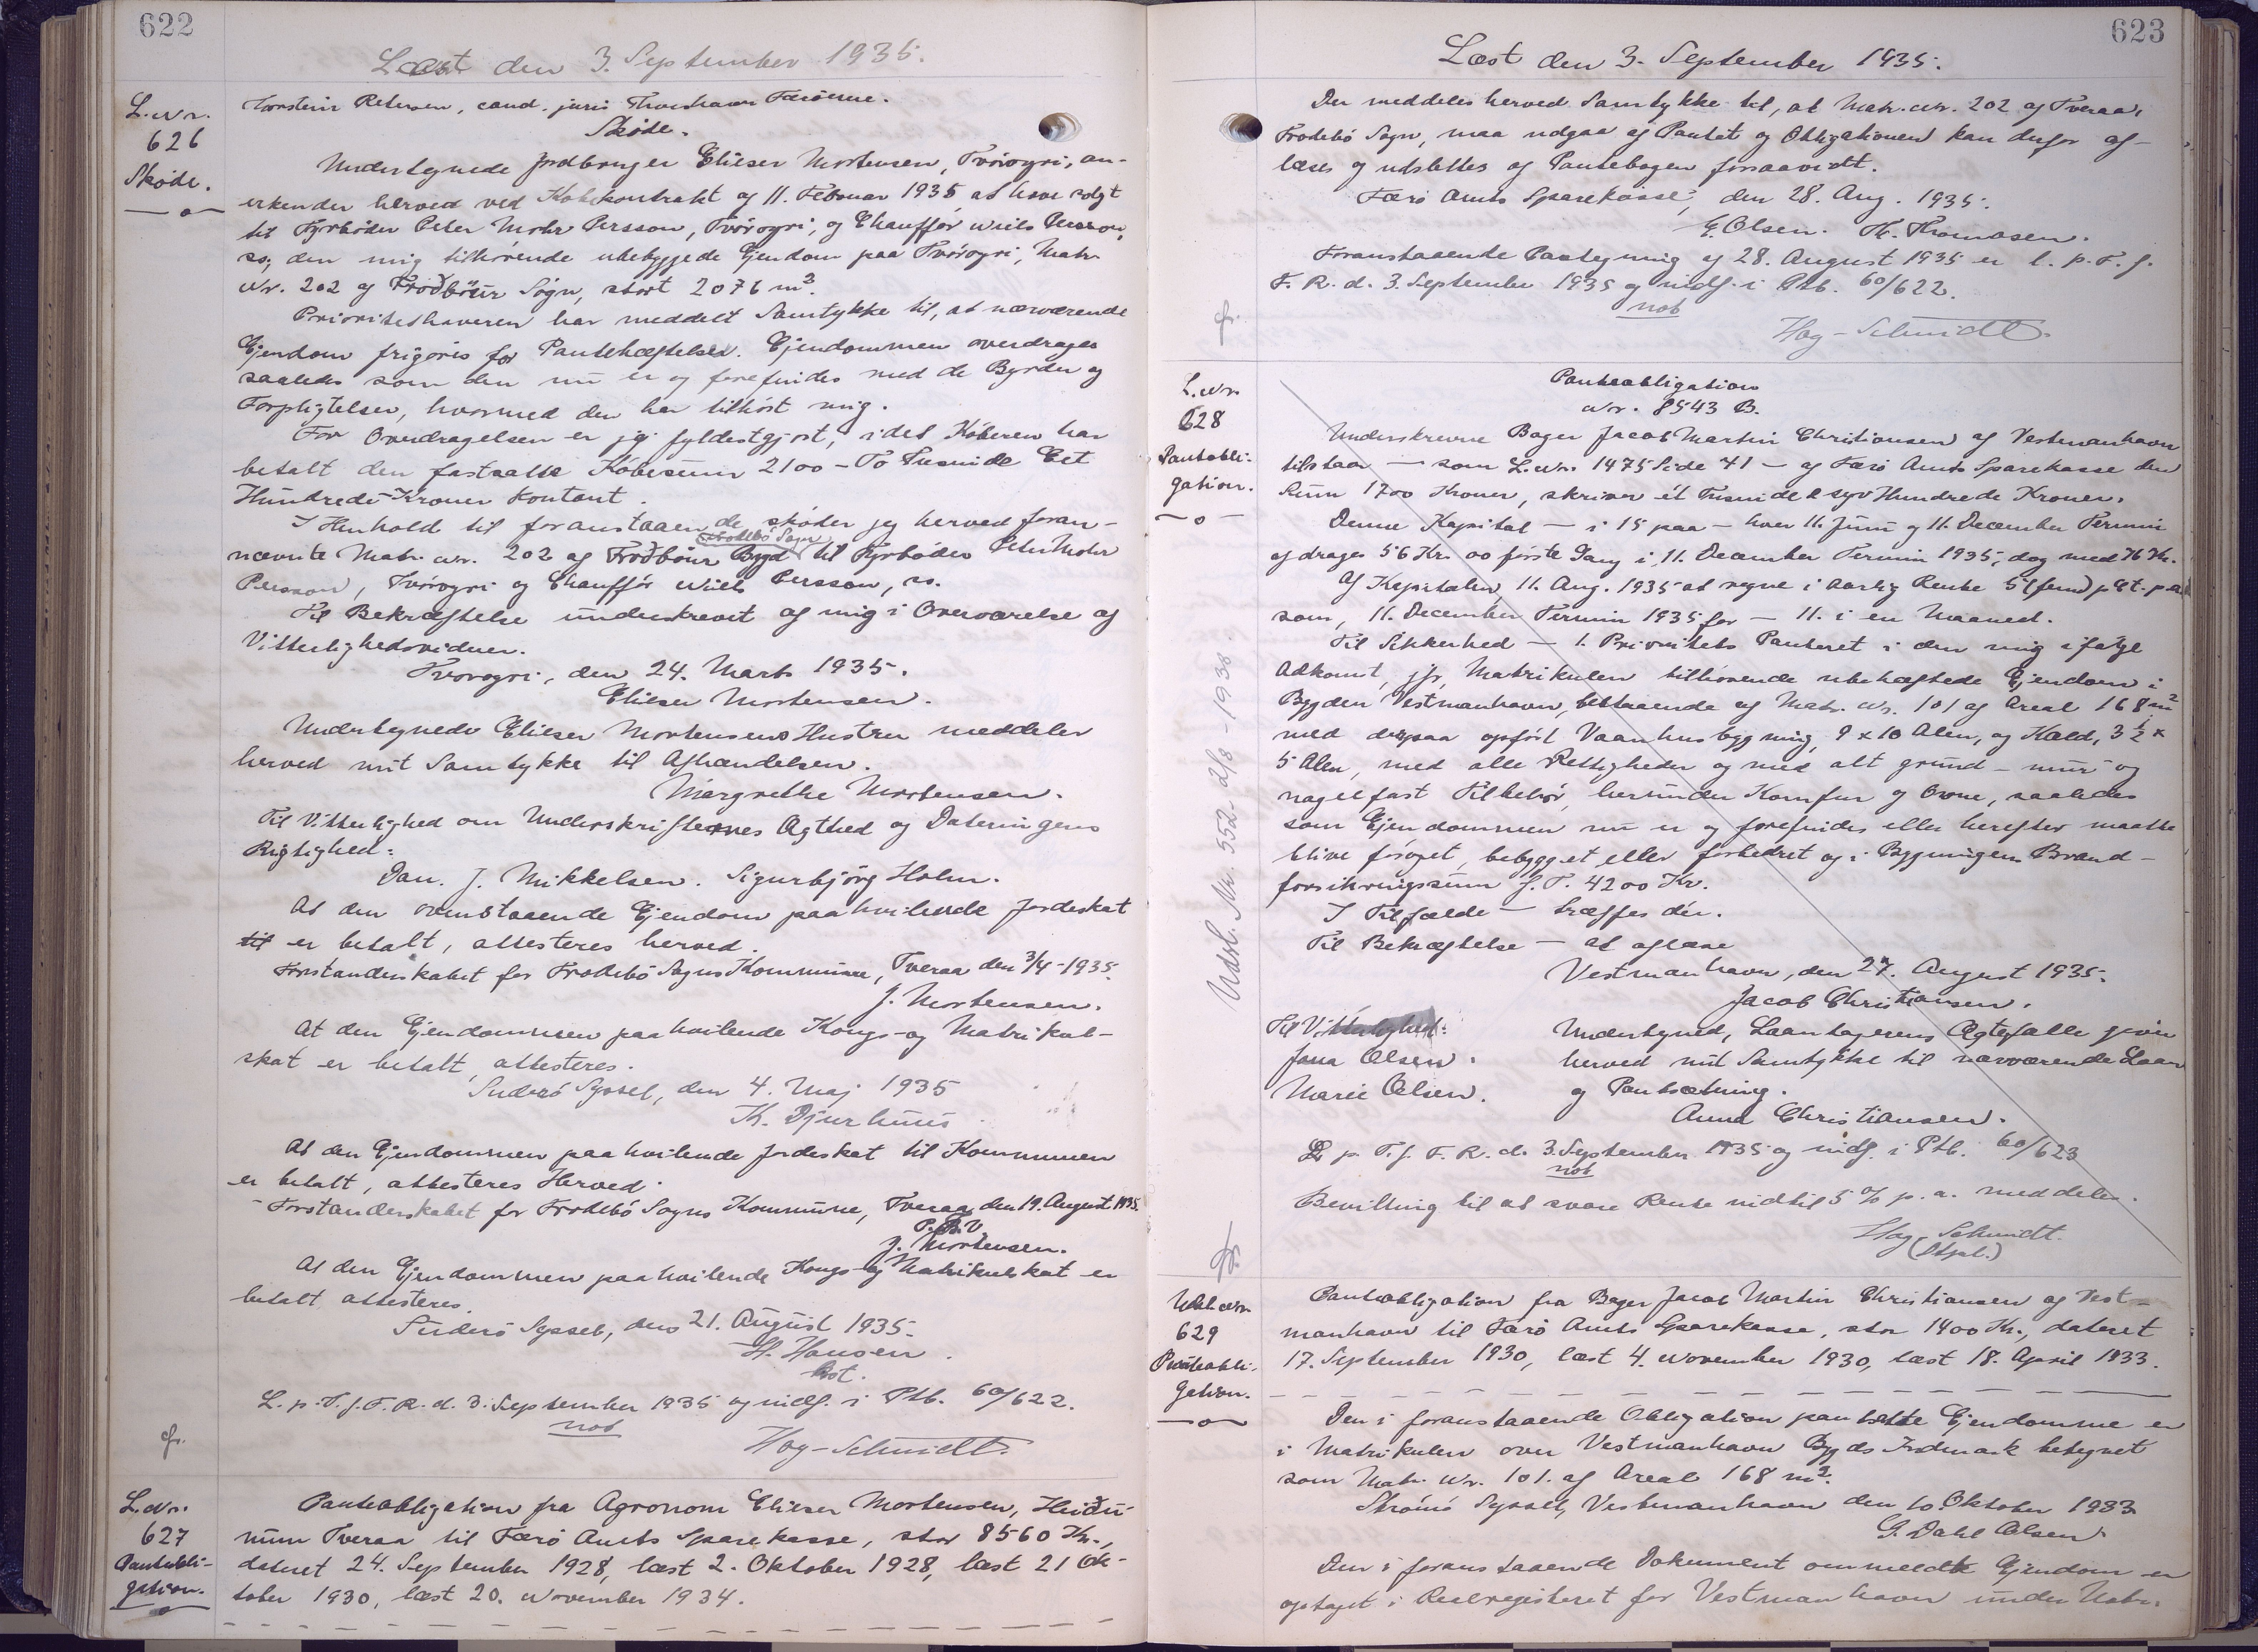 622
Læst den 3. September 1935.
L. Nr.
626
Skøde.
Torstein Petersen, cand. juris Thorshavn Færøerne.
Skøde.
Undertegnede Jordbruger Elieser Mortensen, Tvöroyri, an-
erkender herved ved Købekontrakt af 11. Februar 1935 at have solgt
til Fyrbøder Peter Mohr Persson, Tvöroyri, og Chauffør Niels Persson,
ss; den mig tilhørende ubebyggede Ejendom paa Tvöroyri, Matr.
Nr. 202 af Froðbiur Sogn, stort 2076 m².
Prioritetshaveren har meddelt Samtykke til, at nærværende
Ejendom frigøres for Pantehæftelser. Ejendommen overdrages
saaledes som den nu er og forefindes med de Byrder og
Forpligtelser, hvormed den har tilhørt mig.
For Overdragelsen er jeg fyldestgjort, idet Køberen har
betalt den fastsatte Købesum 2100 - To Tusinde Eet
Hundrede Kroner kontant.
I Henhold til foranstaaende skøder jeg herved foran-
Frodebø Sogn
nævnte Matr. Nr. 202 af Froðbiur Bygd til Fyrbøder Peter Mohr
Persson, Tvöroyri og Chauffør Niels Persson, ss.
Til Bekræftelse underskrevet af mig i Overværelse af
Vitterlighedsvidner.
Tvöroyri, den 24. Marts 1935.
Elieser Mortensen.
Undertegnede Elieser Mortensens Hustru meddeler
herved mit Samtykke til Afhændelsen.
Margrethe Mortensen.
Til Vitterlighed om Underskrifternes Ægthed og Dateringens
Rigtighed:
Dan. J. Mikkelsen. Sigurbjörg Holm.
At den ovenstaaende Ejendom paahvilende Jordeskat
til er betalt, attesteres herved.
Forstanderskabet for Frodebø Sogns Kommune, Tveraa den 3/4-1935.
J. Mortensen.
At den Ejendommen paahvilende Kongs- og Matrikul-
skat er betalt attesteres.
Suderø Syssel, den 4. Maj 1935
K. Djurhuus
At den Ejendommen paahvilende Jordeskat til Kommunen
er betalt, attesteres Herved.
Forstanderskabet for Frodebø Sogns Kommune, Tveraa, den 19. August 1935.
P. B. V.
J. Mortensen.
At den Ejendommen paahvilende Kongs- og Matrikulskat er
betalt attesteres.
Suderø Syssel, den 21. August 1935.
H. Hansen
kst.
L. p. T. f. F. R. d. 3. September 1935 og indf. i Ptb. 60/622.
not
Høg-Schmidt.
L. Nr.
627
Panteobli-
gation.
Panteobligation fra Agronom Elieser Mortensen, Heiðu-
num Tveraa til Færø Amts Sparekasse, stor 8560 Kr.,
dateret 24. September 1928, læst 2. Oktober 1928, læst 21 Ok-
tober 1930, læst 20. November 1934.
623
Læst den 3. September 1935.
Der meddeles herved Samtykke til, at Matr. Nr. 202 af Tveraa,
Frodebø Sogn, maa udgaa af Pantet og Obligationen kan derfor af-
læses og udslettes af Pantebogen forsaavidt.
Færø Amts Sparekasse, den 28. Aug. 1935.
E. Olsen. Th. Thomasen.
Foranstaaende Paategning af 28. August 1935 er l. p. T. f.
F. R. d. 3. September 1935 og indf. i Ptb. 60/622.
not
Høg-Schmidt.
L. Nr.
628
Panteobli-
gation.
Udsl. Nr. 552 2/8 - 1938.
Panteobligation
Nr. 8543 B.
Underskrevne Bager Jacob Martin Christiansen af Vestmanhavn
tilstaar — som L. Nr. 1475 Side 41 — af Færø Amts Sparekasse den
Sum 1700 Kroner, skriver ét Tusinde & syv Hundrede Kroner.
Denne Kapital — i 15 paa — hver 11. Juni og 11. December Termin
afdrages 56 Kr. 00 første Gang i 11. December Termin 1935, dog med Kr.
Af Kapitalen, 11. Aug. 1935 at regne i aarlig Rente 5 (fem) pCt. p. a.
som, 11. December Termin 1935 for — 11. i en Maaned.
Til Sikkerhed — 1. Prioritets Panteret i den mig ifølge
Adkomst, jfr. Matrikulen tilhørende ubehæftede Ejendom i
Bygden Vestmanhavn, bestaaende af Matr. Nr. 101 af Areal 168 m²
med derpaa opført Vaanhusbygning, 9 x 10 Alen, og Kæld, 3½ x
5 Alen, med alle Rettigheder og med alt grund- mur- og
nagelfast Tilbehør, herunder Komfur og Ovne, saaledes
som Ejendommen nu er og forefindes eller herefter maatte
blive forøget, bebygget eller forbedret og i Bygningens Brand-
forsikringssum f. T. 4200 Kr.
I Tilfælde — træffes dér.
Til Bekræftelse — at aflæse
Vestmanhavn, den 27. August 1935.
Jacob Christiansen.
Til Vitterlighed:
Jona Olsen.
Marie Olsen.
Undertegnede, Laantagerens Ægtefælle giver
herved mit Samtykke til nærværende Laan
og Pantsætning.
Anna Christiansen.
L. p. T. f. F. R. d. 3. September 1935 og indf. i Ptb. 60/623
not
Bevilling til at svare Rente indtil 5 % p. a. meddeles.
Høg-Schmidt.
(Stpl.)
629
Panteobli-
gation.
Panteobligation fra Bager Jacob Martin Christiansen af Vest-
manhavn til Færø Amts Sparekasse, stor 1400 Kr., dateret
17. September 1930, læst 4. November 1930, læst 18. April 1933.
Den i foranstaaende Obligation pantsatte Ejendomme er
i Matrikulen over Vestmanhavn Bygds Indmark betegnet
som Matr. Nr. 101. af Areal 168 m².
Strømø Syssel, Vestmanhavn den 10. Oktober 1933
G. Dahl Olsen
Den i foranstaaende Dokument ommeldte Ejendom er
optaget i Realregisteret for Vestmanhavn under Matr.